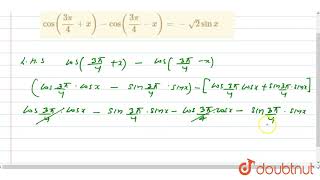 cos(3π/4 + x) − cos(3π/4 − x) = −√2 sin x
L.H.S cos(3π/4 + x) − cos(3π/4 − x)
(cos 3π/4 · cosx − sin 3π/4 · sinx) − [cos 3π/4 cosx + sin 3π/4 sinx]
cos 3π/4 · cosx − sin 3π/4 · sinx − cos 3π/4 · cosx − sin 3π/4 · sinx
doubtnut